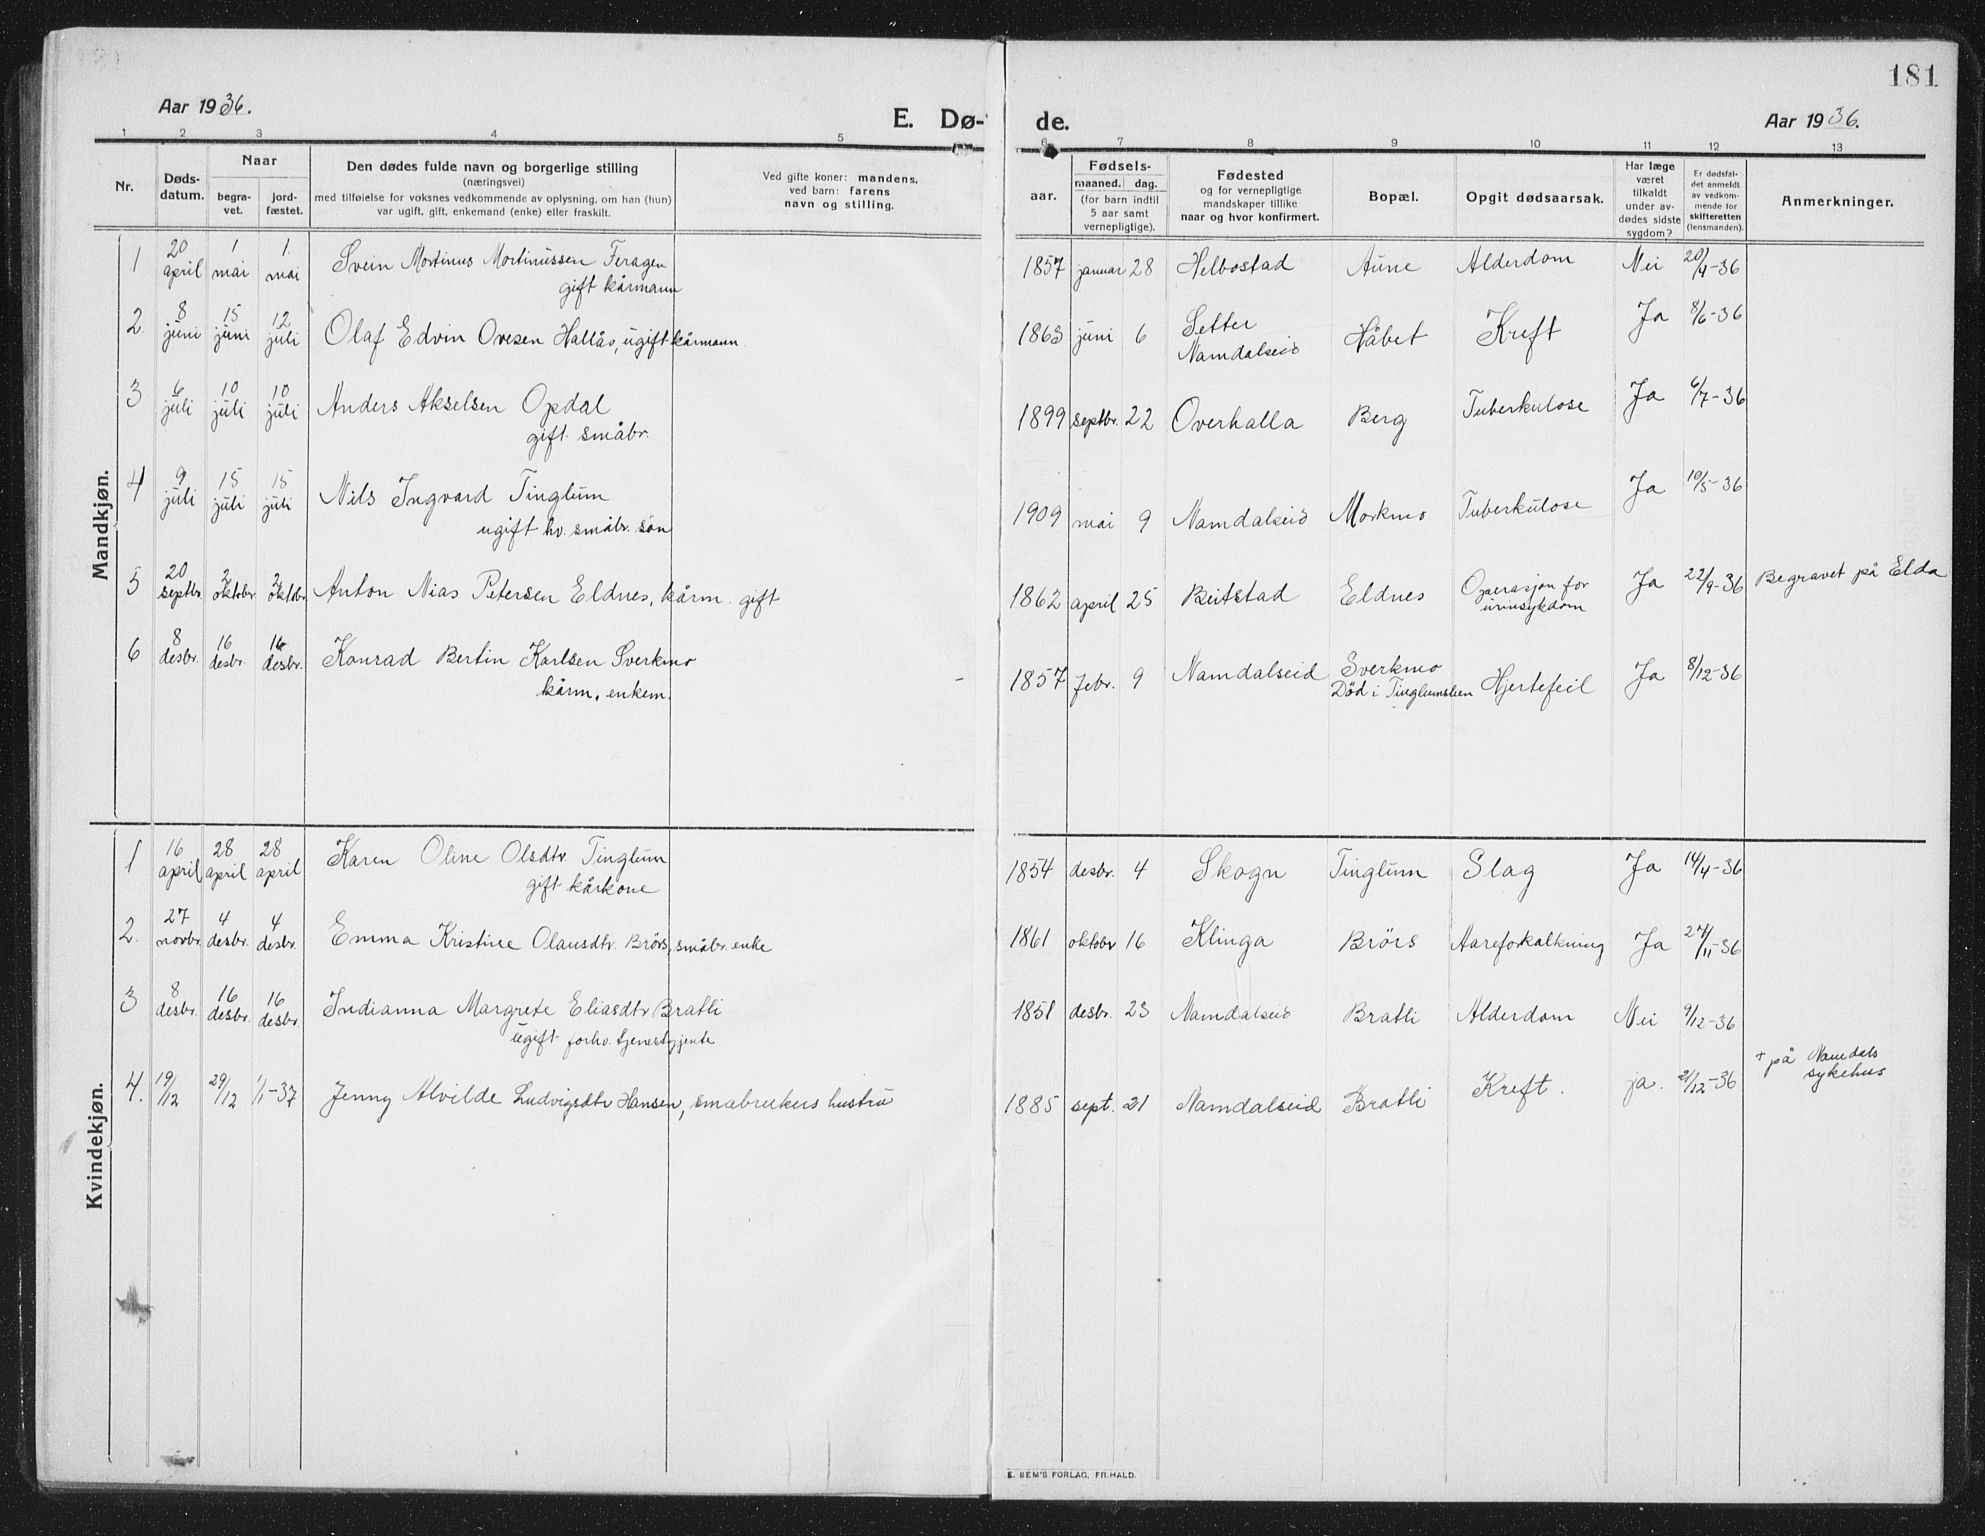 181
Aar 1936.
E. Dø-
de.
Aar 1936.
1 2 3 4 5 6 7 8 9 10 11 12 13
Nr.
Dødsdatum.
Naar
begravet.
jordfæstet.
Den dødes fulde navn og borgerlige stilling
(næringsvei)
med tilføielse for voksnes vedkommende av oplysning, om han (hun)
var ugift, gift, enkemand (enke) eller fraskilt.
Ved gifte koner: mandens,
ved barn: farens
navn og stilling.
Fødsels-
aar.
maaned. dag.
(for barn indtil
5 aar samt
vernepligtige).
Fødested
og for vernepligtige
mandskaper tillike
naar og hvor konfirmert.
Bopæl.
Opgit dødsaarsak.
Har læge
været
tilkaldt
under av-
dødes sidste
sygdom?
Er dødsfal-
det anmeldt
av vedkom-
mende for
skifteretten
(lensmanden).
Anmerkninger.
Mandkjøn.
1 20 april 1 mai 1. mai Svein Mortinus Mortinussen Feragen
gift kårmann
1857 januar 28 Helbostad Aune Alderdom Nei 20/4-36
2. 8 juni 15 juni 12 juli Olaf Edvin Ovesen Hallås, ugift kårmann.
1863 juni 6 Setter Namdalseid Håbet Kreft Ja 8/6-36
3 6 juli 10 juli 10 juli Anders Akselsen Opdal
gift småbr.
1899 septbr. 22 Overhalla Berg Tuberkulose Ja 6/7-36
4 9 juli 15 juli 15 juli Nils Ingvard Tinglum
ugift hv. småbr. søn
1909 mai 9 Namdalseid Morkmo Tuberkulose Ja 10/5-36
5 20 septbr. 2 oktobr 2 oktobr Anton Nias Petersen Eldnes, kårm. gift
1862 april 25 Beitstad Eldnes Operasjon for urinsykdom Ja 22/9-36 Begravet på Elda
6 8 desbr. 16 desbr. 16 desbr. Konrad Bertin Karlsen Sverkmo
kårm, enkem.
1857 febr. 9 Namdalseid Sverkmo
Død i Tinglumslien Hjertefeil Ja 8/12-36
Kvindekjøn.
1 16 april 28 april 28 april Karen Oline Olsdtr. Tinglum
gift kårkone
1854 desbr. 4 Skogn Tinglum Slag Ja 14/4-36
2. 27 novbr. 4 desbr. 4 desbr. Emma Kristine Olausdtr. Brörs, småbr. enke
1861 oktobr 16 Klinga Brörs Aareforkalkning Ja 27/11-36
3 8 desbr. 16 desbr. 16 desbr. Indianna Margrete Eliasdtr Bratli
ugift forhv. tjenestejente
1851 desbr. 23 Namdalseid Bratli Alderdom Nei 9/12-36
4. 19/12 29/12 1/1-37 Jenny Alvilde Ludvigsdtr Hansen, småbrukers hustru
1885 sept. 21 Namdalseid Bratli Kreft. ja. 21/12-36 + på Namdals sykehus
E. SEM'S FORLAG, FR.HALD.